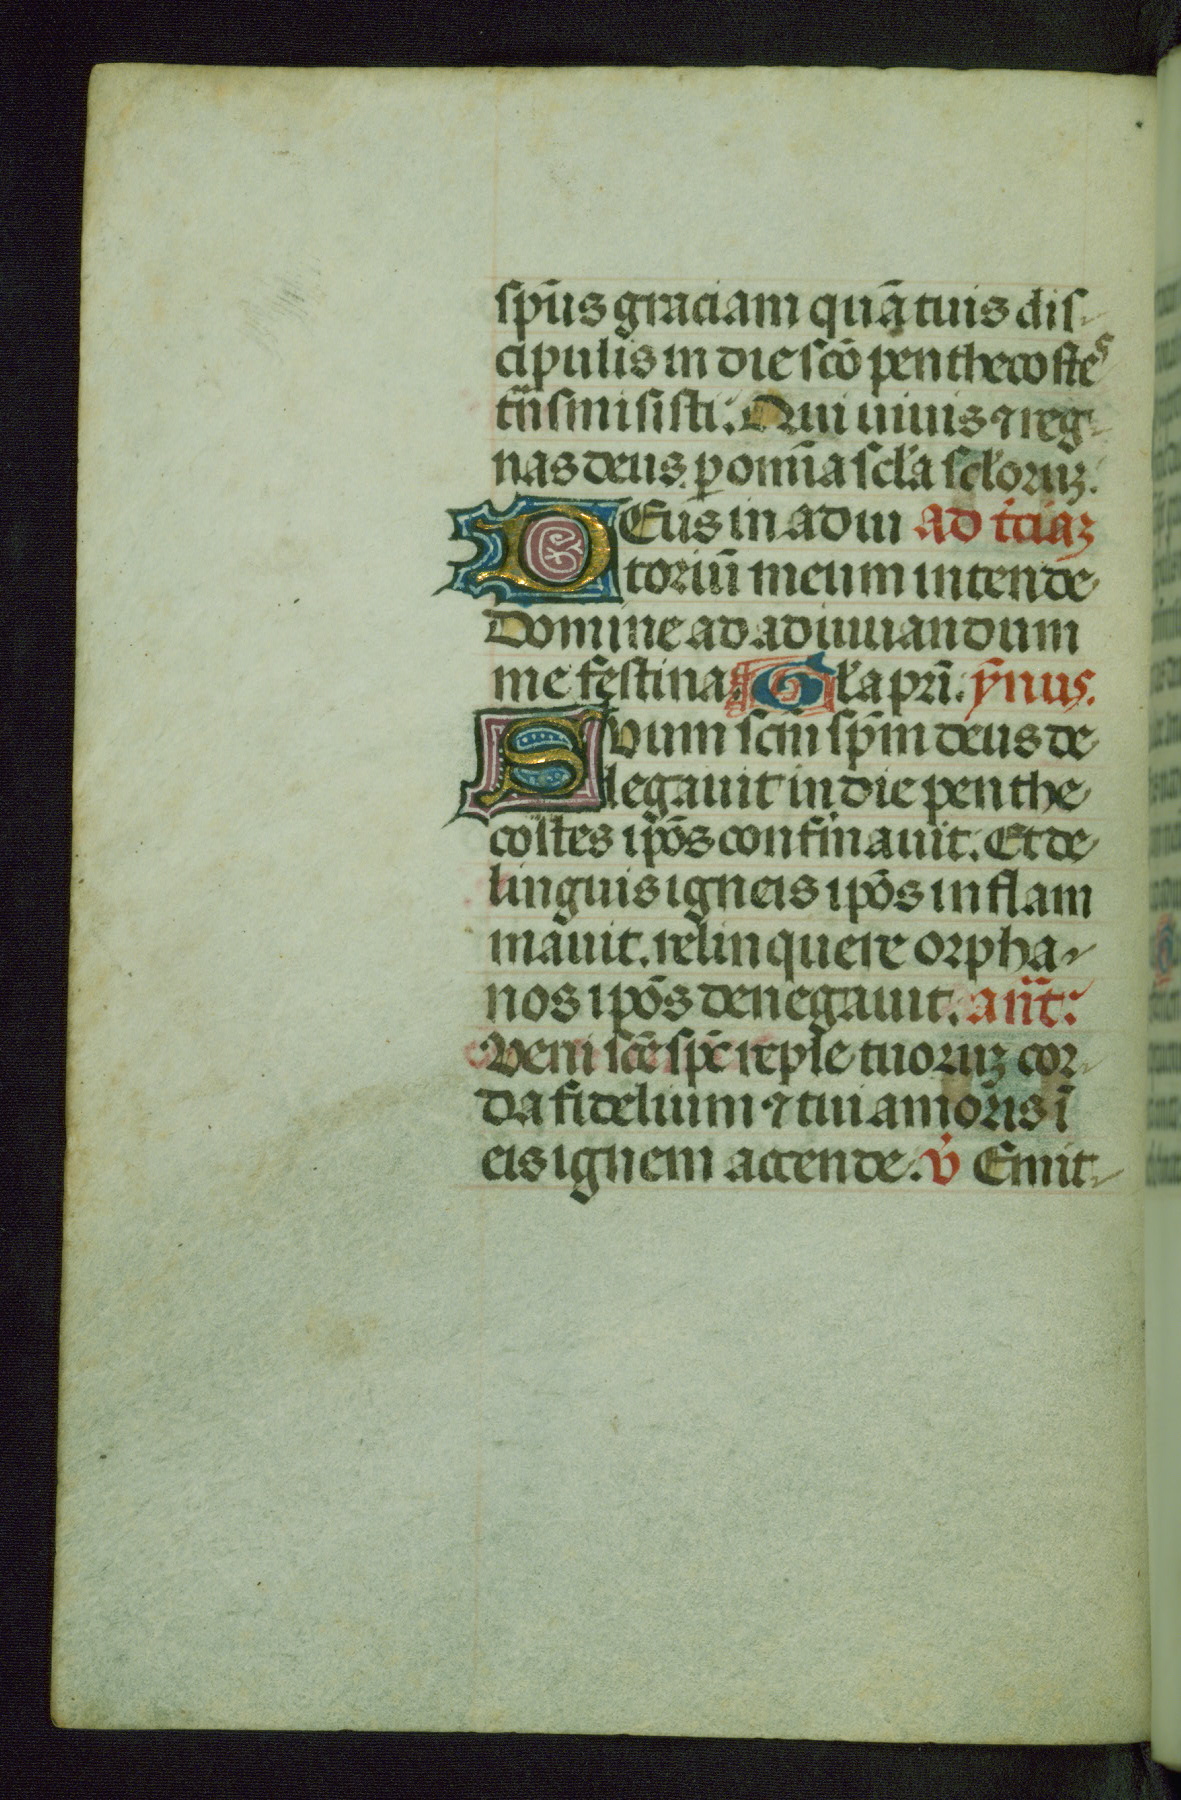 sp̄us graciam quā tuis dis-
cipulis in die scō penthecostes
tn̄smisisti. Qui uiuis ⁊ reg-
nas deus. ꝑ om̄ia scl̄a scl̄oꝝ.
DEus in adiu ad t̄ciaꝫ
toriū meum intende
Domine ad adiuuandum
me festina. Gl̄a pr̄i. ȳnus.
Suum scm̄ sp̄m deus de
legauit in die penthe
costes ip̄os confirmauit. Et de
linguis igneis ip̄os inflam
mauit. relinquere orpha-
nos ip̄os denegauit. an̄t.
Veni scē sp̄c reple tuoꝝ cor-
da fidelium ⁊ tui amoris ī
eis ignem accende. v̄ Emit-